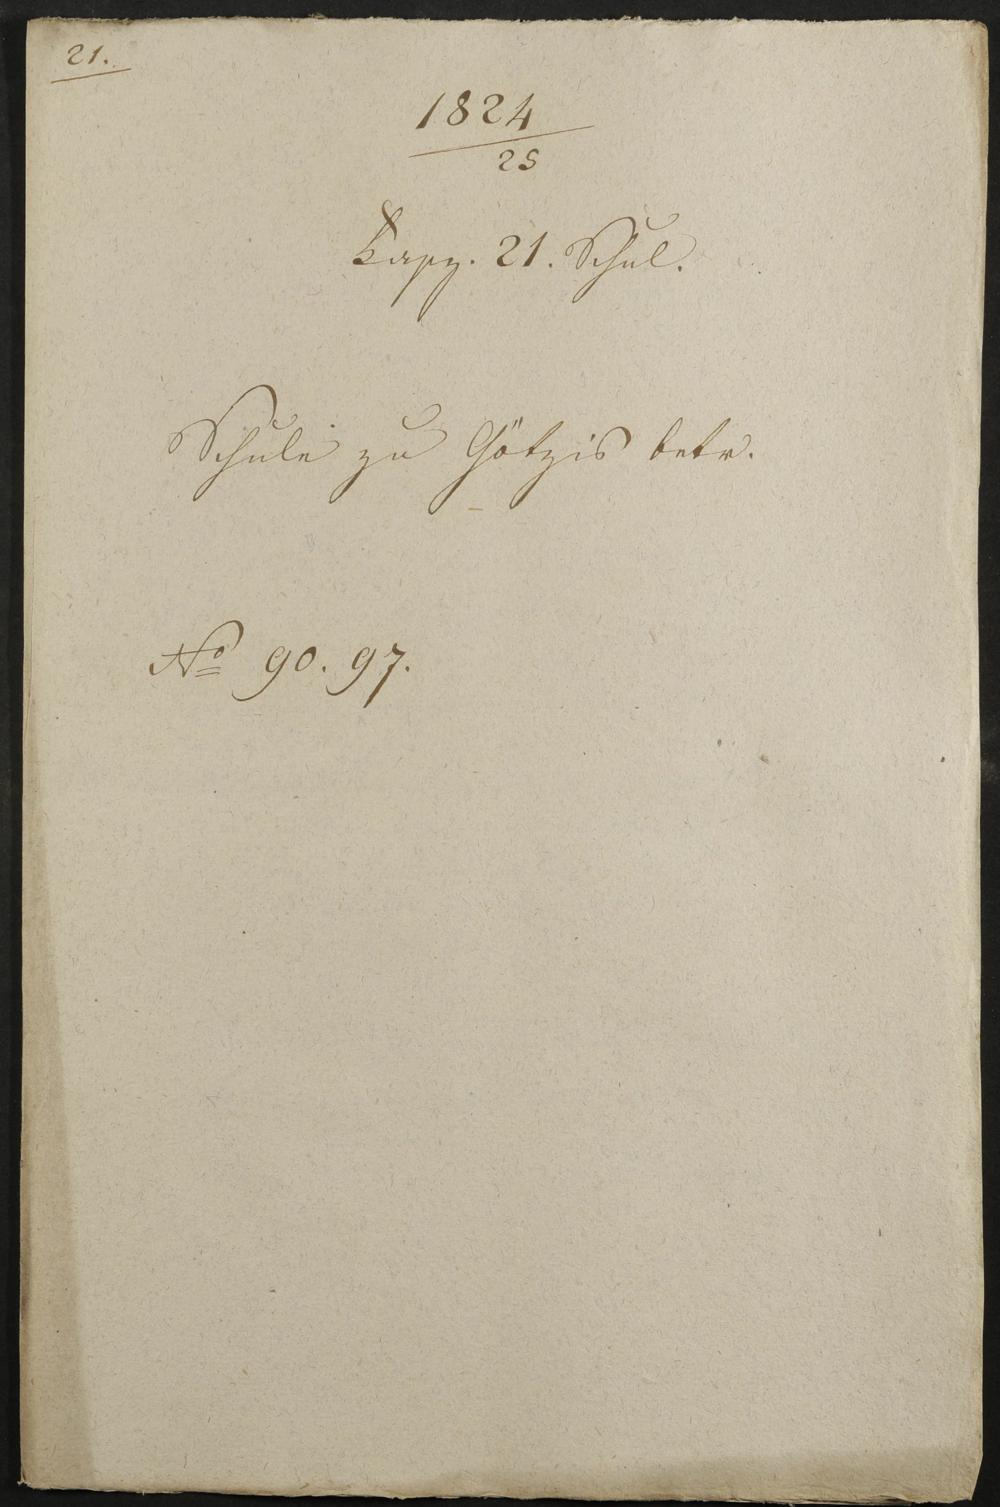 21.
1824
25
Fasz. 21. Schul.
Schule zu Götzis betr.
No 90. 97.